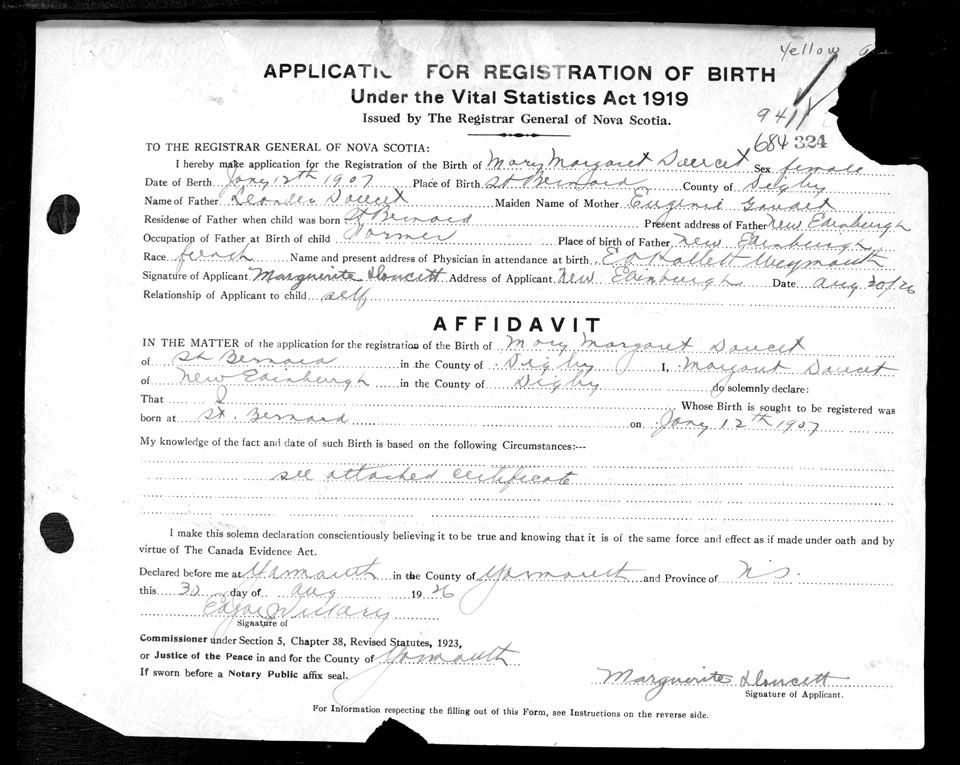 Yellow
APPLICATIC FOR REGISTRATION OF BIRTH
Under the Vital Statistics Act 1919
Issued by The Registrar General of Nova Scotia.
9411
684 324
TO THE REGISTRAR GENERAL OF NOVA SCOTIA:
I hereby make application for the Registration of the Birth of Mary Margaret Doucet Sex female
Date of Berth Jany 12th 1907 Place of Birth St Bernard County of Digby
Name of Father Leander Doucet Maiden Name of Mother Eugenie Gaudet
Residense of Father when child was born St Bernard Present address of Father New Edinburgh
Occupation of Father at Birth of child Farmer Place of birth of Father New Edinburgh
Race french Name and present address of Physician in attendance at birth E O Hallett Weymouth
Signature of Applicant Marguerite Doucett Address of Applicant New Edinburgh Date Aug 30/26
Relationship of Applicant to child self
AFFIDAVIT
IN THE MATTER of the application for the registration of the Birth of Mary Margaret Doucet
of St Bernard in the County of Digby I, Margaret Doucet
of New Edinburgh in the County of Digby do solemnly declare:
That I Whose Birth is sought to be registered was
born at St. Bernard on Jany 12th 1907
My knowledge of the fact and date of such Birth is based on the following Circumstances:---
see attached certificate
I make this solemn declaration conscientiously believing it to be true and knowing that it is of the same force and effect as if made under oath and by
virtue of The Canada Evidence Act.
Declared before me at Yarmouth in the County of Yarmouth and Province of N.S.
this 30 day of Aug 1926
Signature of
Commissioner under Section 5, Chapter 38, Revised Statutes, 1923,
or Justice of the Peace in and for the County of Yarmouth
If sworn before a Notary Public affix seal.
Marguerite Doucett
Signature of Applicant.
For Information respecting the filling out of this Form, see Instructions on the reverse side.